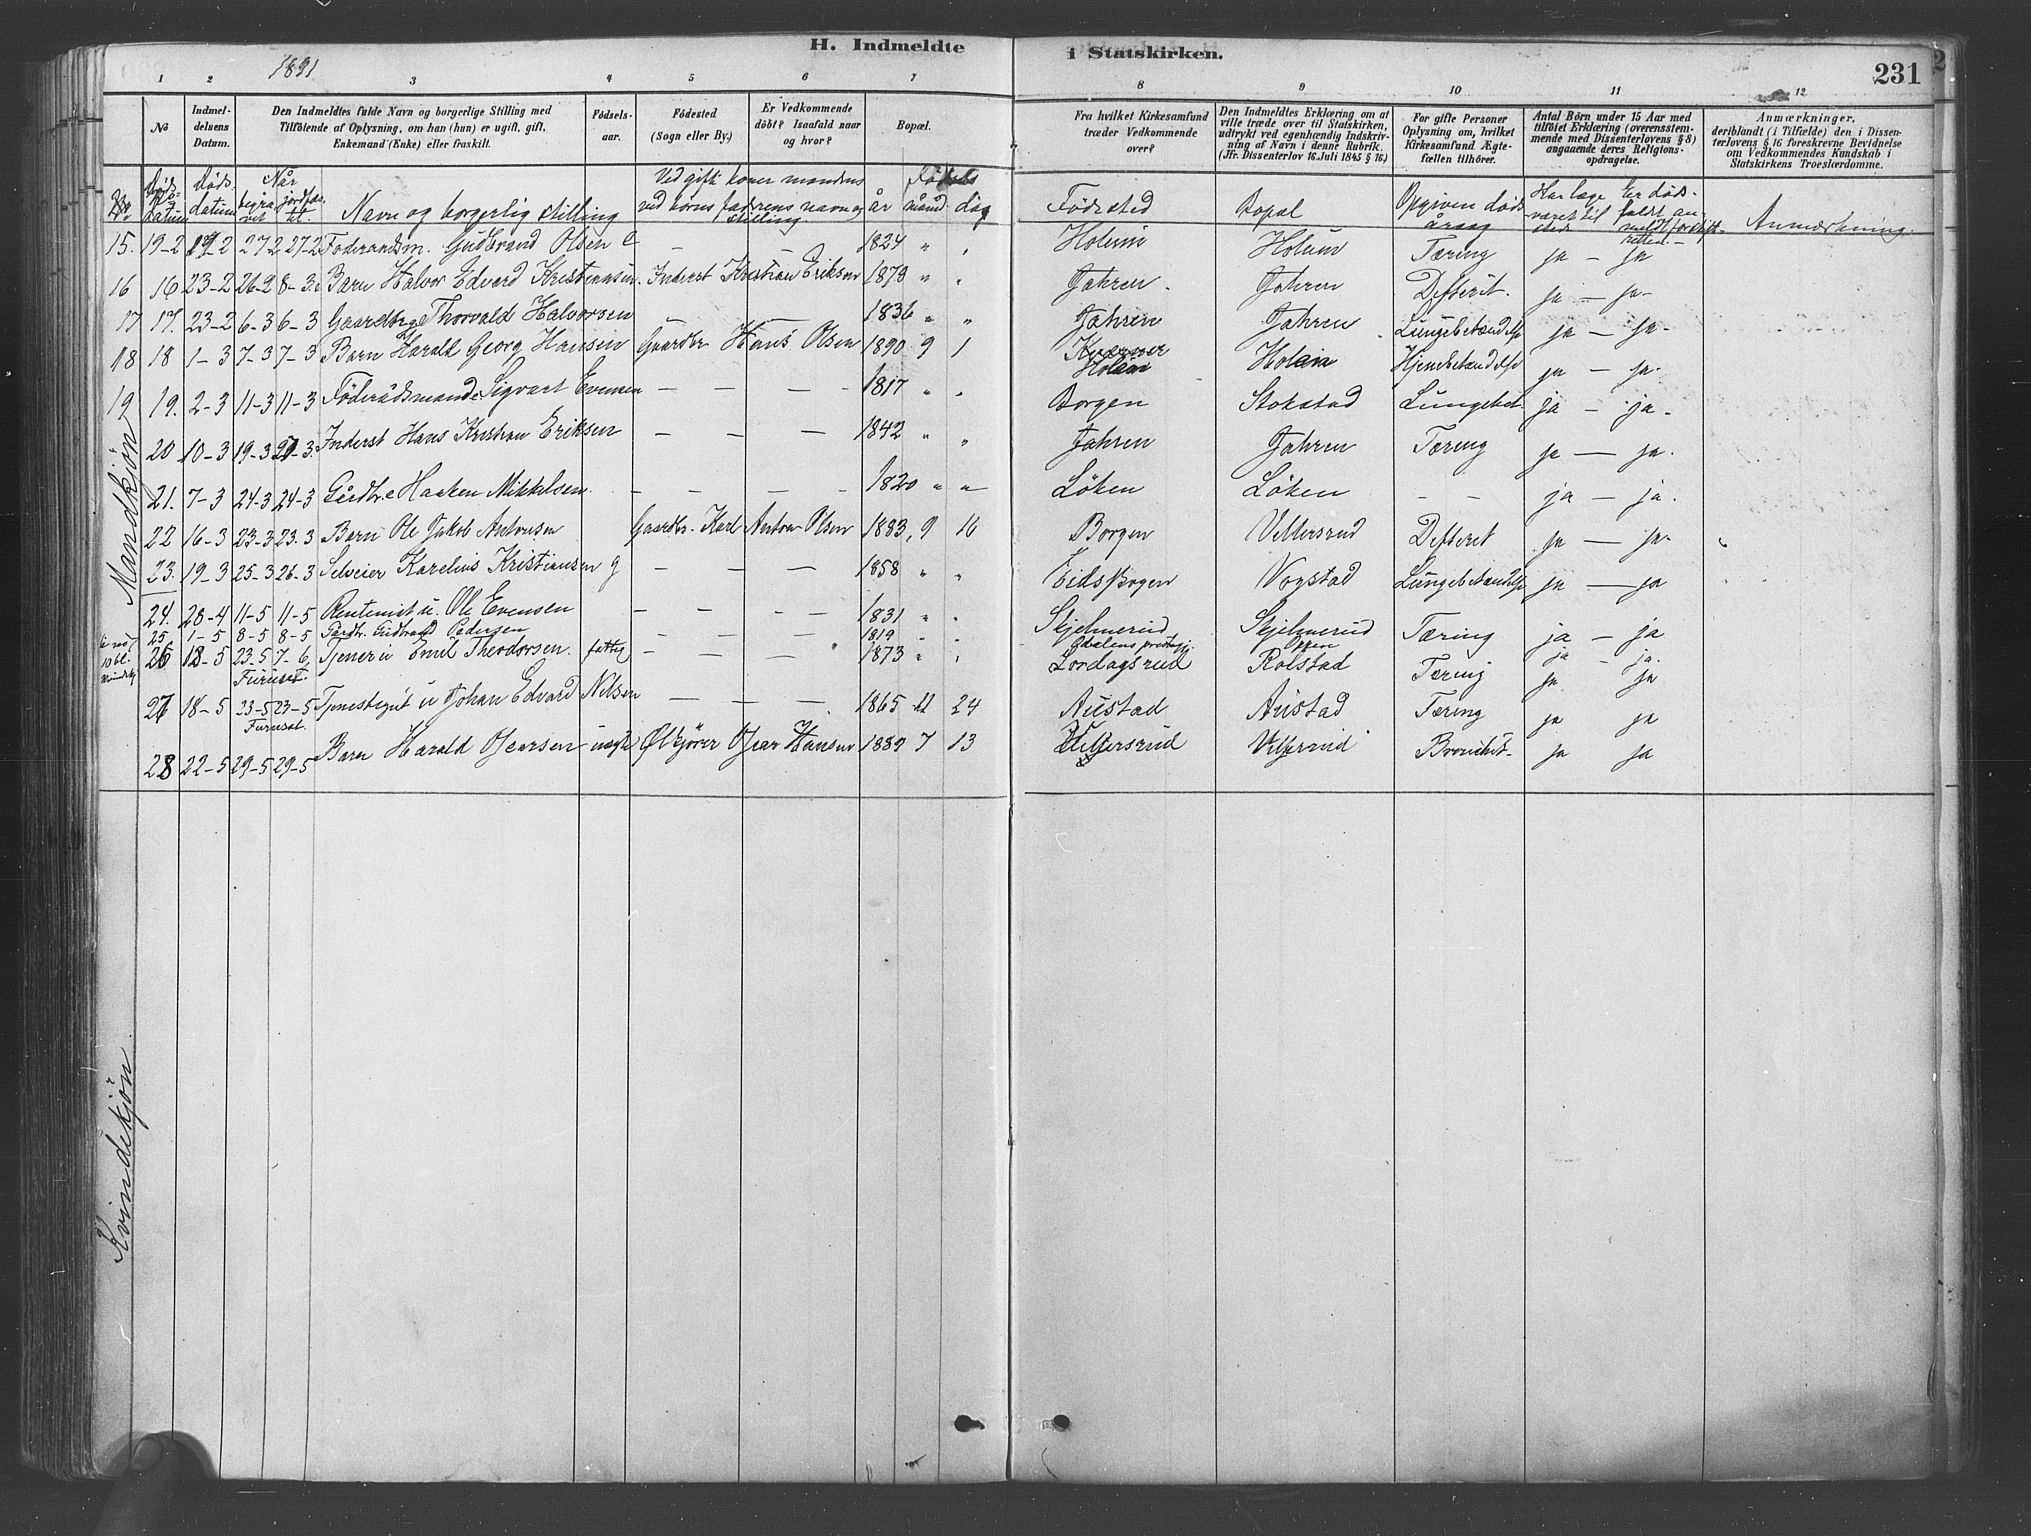 H. Indmeldte i Statskirken.
231
1891
1 2 3 4 5 6 7 8 9 10 11 12
No
Indmel-delsens Datum.
Den Indmeldtes fulde Navn og borgerlige Stilling med Tilföiende af Oplysning, om han (hun) er ugift, gift, Enkemand (Enke) eller fraskilt.
Födsels-aar.
Födested (Sogn eller By.)
Er Vedkommende döbt? Isaafald naar og hvor?
Bopæl.
Fra hvilket Kirkesamfund træder Vedkommende over?
Den Indmeldtes Erklæring om at ville træde over til Statskirken, udtrykt ved egenhændig Indskrivning af Navn i denne Rubrik. (Jfr. Dissenterlov 16. Juli 1845 § 16.)
For gifte Personer Oplysning om, hvilket Kirkesamfund Ægtefællen tilhörer.
Antal Börn under 15 Aar med tilföiet Erklæring (overensstemmende med Dissenterlovens § 8) angaaende deres Religionsopdragelse.
Anmærkninger, deriblandt (i Tilfælde) den i Dissenterlovens § 16 foreskrevne Bevidnelse om Vedkommendes Kundskab i Statskirkens Troeslærdomme.
Döds datum Når begravet jordfæstet Navn og borgerlig stilling Ved gift koner mandens ved börns faderens navn og stilling Födsels år måned dag Födested Bopæl Opgiven dödsårsag Har læge været tilstede Er dödsfaldt anmeldt for skifteretten Anmærkning.
15. 19-2 27-2 27-2 Föderaadsm. Gudbrand Olsen e — — 1824 " " Holum Holum Tæring ja — ja
16 16 23-2 26-2 8-3 Barn Halvor Edvard Kristiansen. Inderst Kristian Eriksen 1878 " " Jahren. Jahren Difterit. ja — ja
17 17. 23-2 6-3 6-3 Gaardbr g Thorvald Halvorsen — — 1836 " " Jahren Jahren Lungebetændelse ja — ja
18 18 1-3 7-3 7-3 Barn Harald Georg Hansen Gaardbr Hans Olsen 1890 9 1 Holum Holum Hjernebetændelse ja — ja.
19 19. 2-3 11-3 11-3 Föderådsmand e Sigvart Evensen — — — 1817 " " Borgen Stokstad Lungebet. ja — ja.
20 10-3 19-3 20-3. Inderst Hans Kristian Eriksen — — — 1842 " " Jahren Jahren Tæring ja — ja.
21. 7-3 24-3 24-3 Gårdbr. e Haaken Mikkelsen. — — — 1820 " " Löken Löken — — ja — ja.
22 16-3 23-3 23.3 Barn Ole Jakob Antonsen Gaardbr. Karl Anton Olsen 1883, 9 16 Borgen Vittersrud Difteret ja — ja
23. 19-3 25-3 26-3 Selveier Karelius Kristiansen g — — — 1858 " " Eidsvogen Vogstad Lungebetændelse ja — ja
24. 28-4 11-5 11-5 Rentenist u. Ole Evensen — — — 1831 " " Skjelnerud Skjelnerud Tæring ja — ja
25. 1-5 8-5 8-5 Gårdbr. Gudbrand Pedersen — — — 1819 " " Odalens prestegj. Oppen ja — ja.
26 18-5 23-5 7-6 Tjener u Emil Theodorsen. fattig — — — 1873 " " Lördagsrud Rolstad Tæring ja ja
Furuset
27 18-5 23-5 23-5 Tjenestegut u Johan Edvard Nilsen — — — 1865 11 24 Austad Austad Tæring ja ja
Furuset
28 22-5 29-5 29-5 Barn Harald Oscarsen uægte Ölkjörer Oscar Hansen 1889 7 13 Vittersrud Vittersrud Bronchit. ja ja
Mandkjön
Kvindekjön.